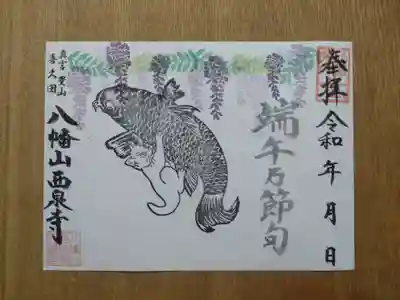 奉拝
令和 年 月 日
端午乃節句
真言 豊山
喜久田
八幡山西泉寺